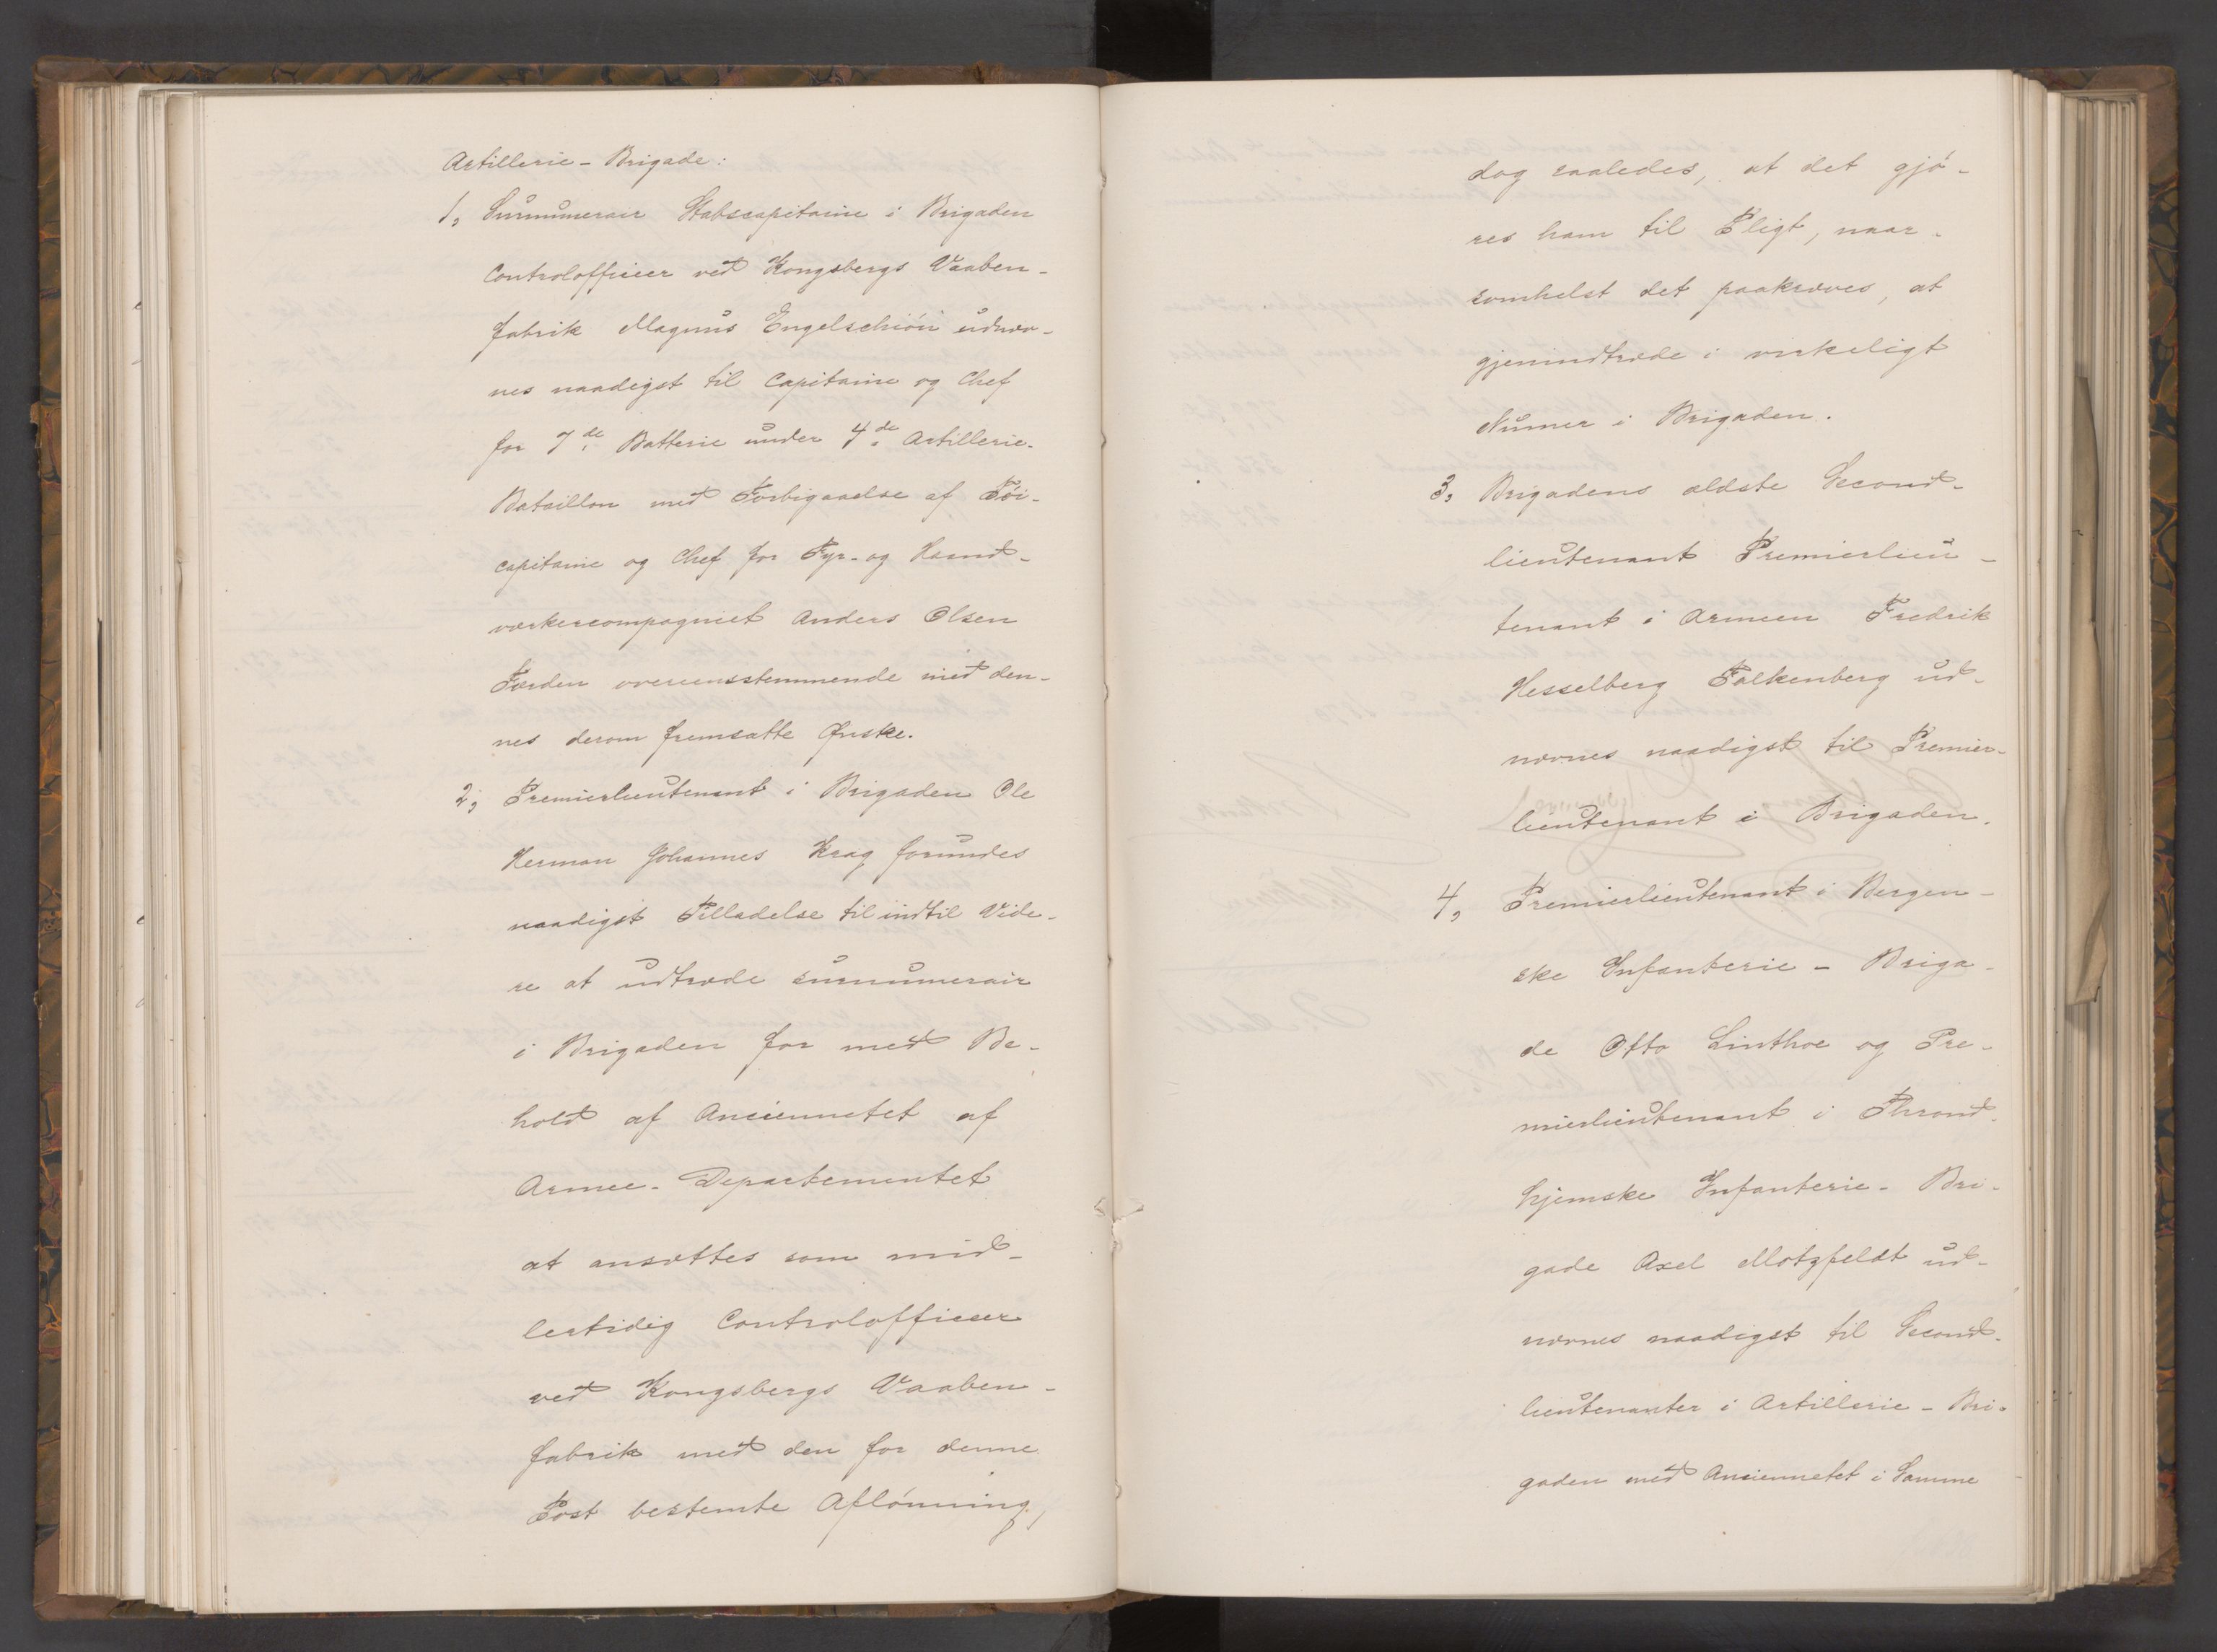 Artillerie-Brigade:
1, Surnumerair Stabscapitaine i Brigaden
Controlofficeer ved Kongsbergs Vaaben-
fabrik Magnus Engelschiön udnæv-
nes naadigst til Capitaine og Chef
for 7de Batterie under 4de Artillerie-
Bataillon med Forbigaaelse af Töi-
capitaine og Chef for Fyr- og Haand-
værkercompagniet Anders Olsen
Færden overeensstemmende med den-
nes derom fremsatte Ønske.
2, Premierlieutenant i Brigaden Ole
Herman Johannes Krag forundes
naadigst Tilladelse til indtil Vide-
re at udtræde surnumerair
i Brigaden for med Be-
hold af Anciennetet af
Armee-Departementet
at ansættes som mid-
lertidig Controlofficeer
ved Kongsbergs Vaaben-
fabrik med den for denne
Post bestemte Aflönning,
dog saaledes, at det gjö-
res ham til Pligt, naar-
somhelst det paakræves, at
gjenindtræde i virkeligt
Numer i Brigaden.
3, Brigadens ældste Second-
lieutenant Premierlieu-
tenant i Armeen Fredrik
Hesselberg Falkenberg ud-
nævnes naadigst til Premier-
lieutenant i Brigaden.
4, Premierlieutenant i Bergen-
ske Infanterie-Briga-
de Otto Linthoe og Pre-
mierlieutenant i Thrond-
hjemske Infanterie-Bri-
gade Axel Motzfeldt ud-
nævnes naadigst til Second-
lieutenanter i Artillerie-Bri-
gaden med Anciennetet i Samme